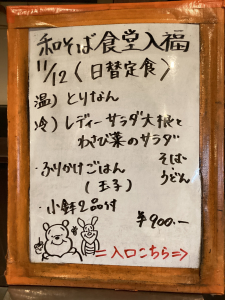 和そば食堂入福
11/12(日替定食)
温)とりなん
冷)レディーサラダ大根と
わさび菜のサラダ
そば・
うどん
・ふりかけごはん
(玉子)
・小鉢2品付
¥900.—
=入口こちら⇒